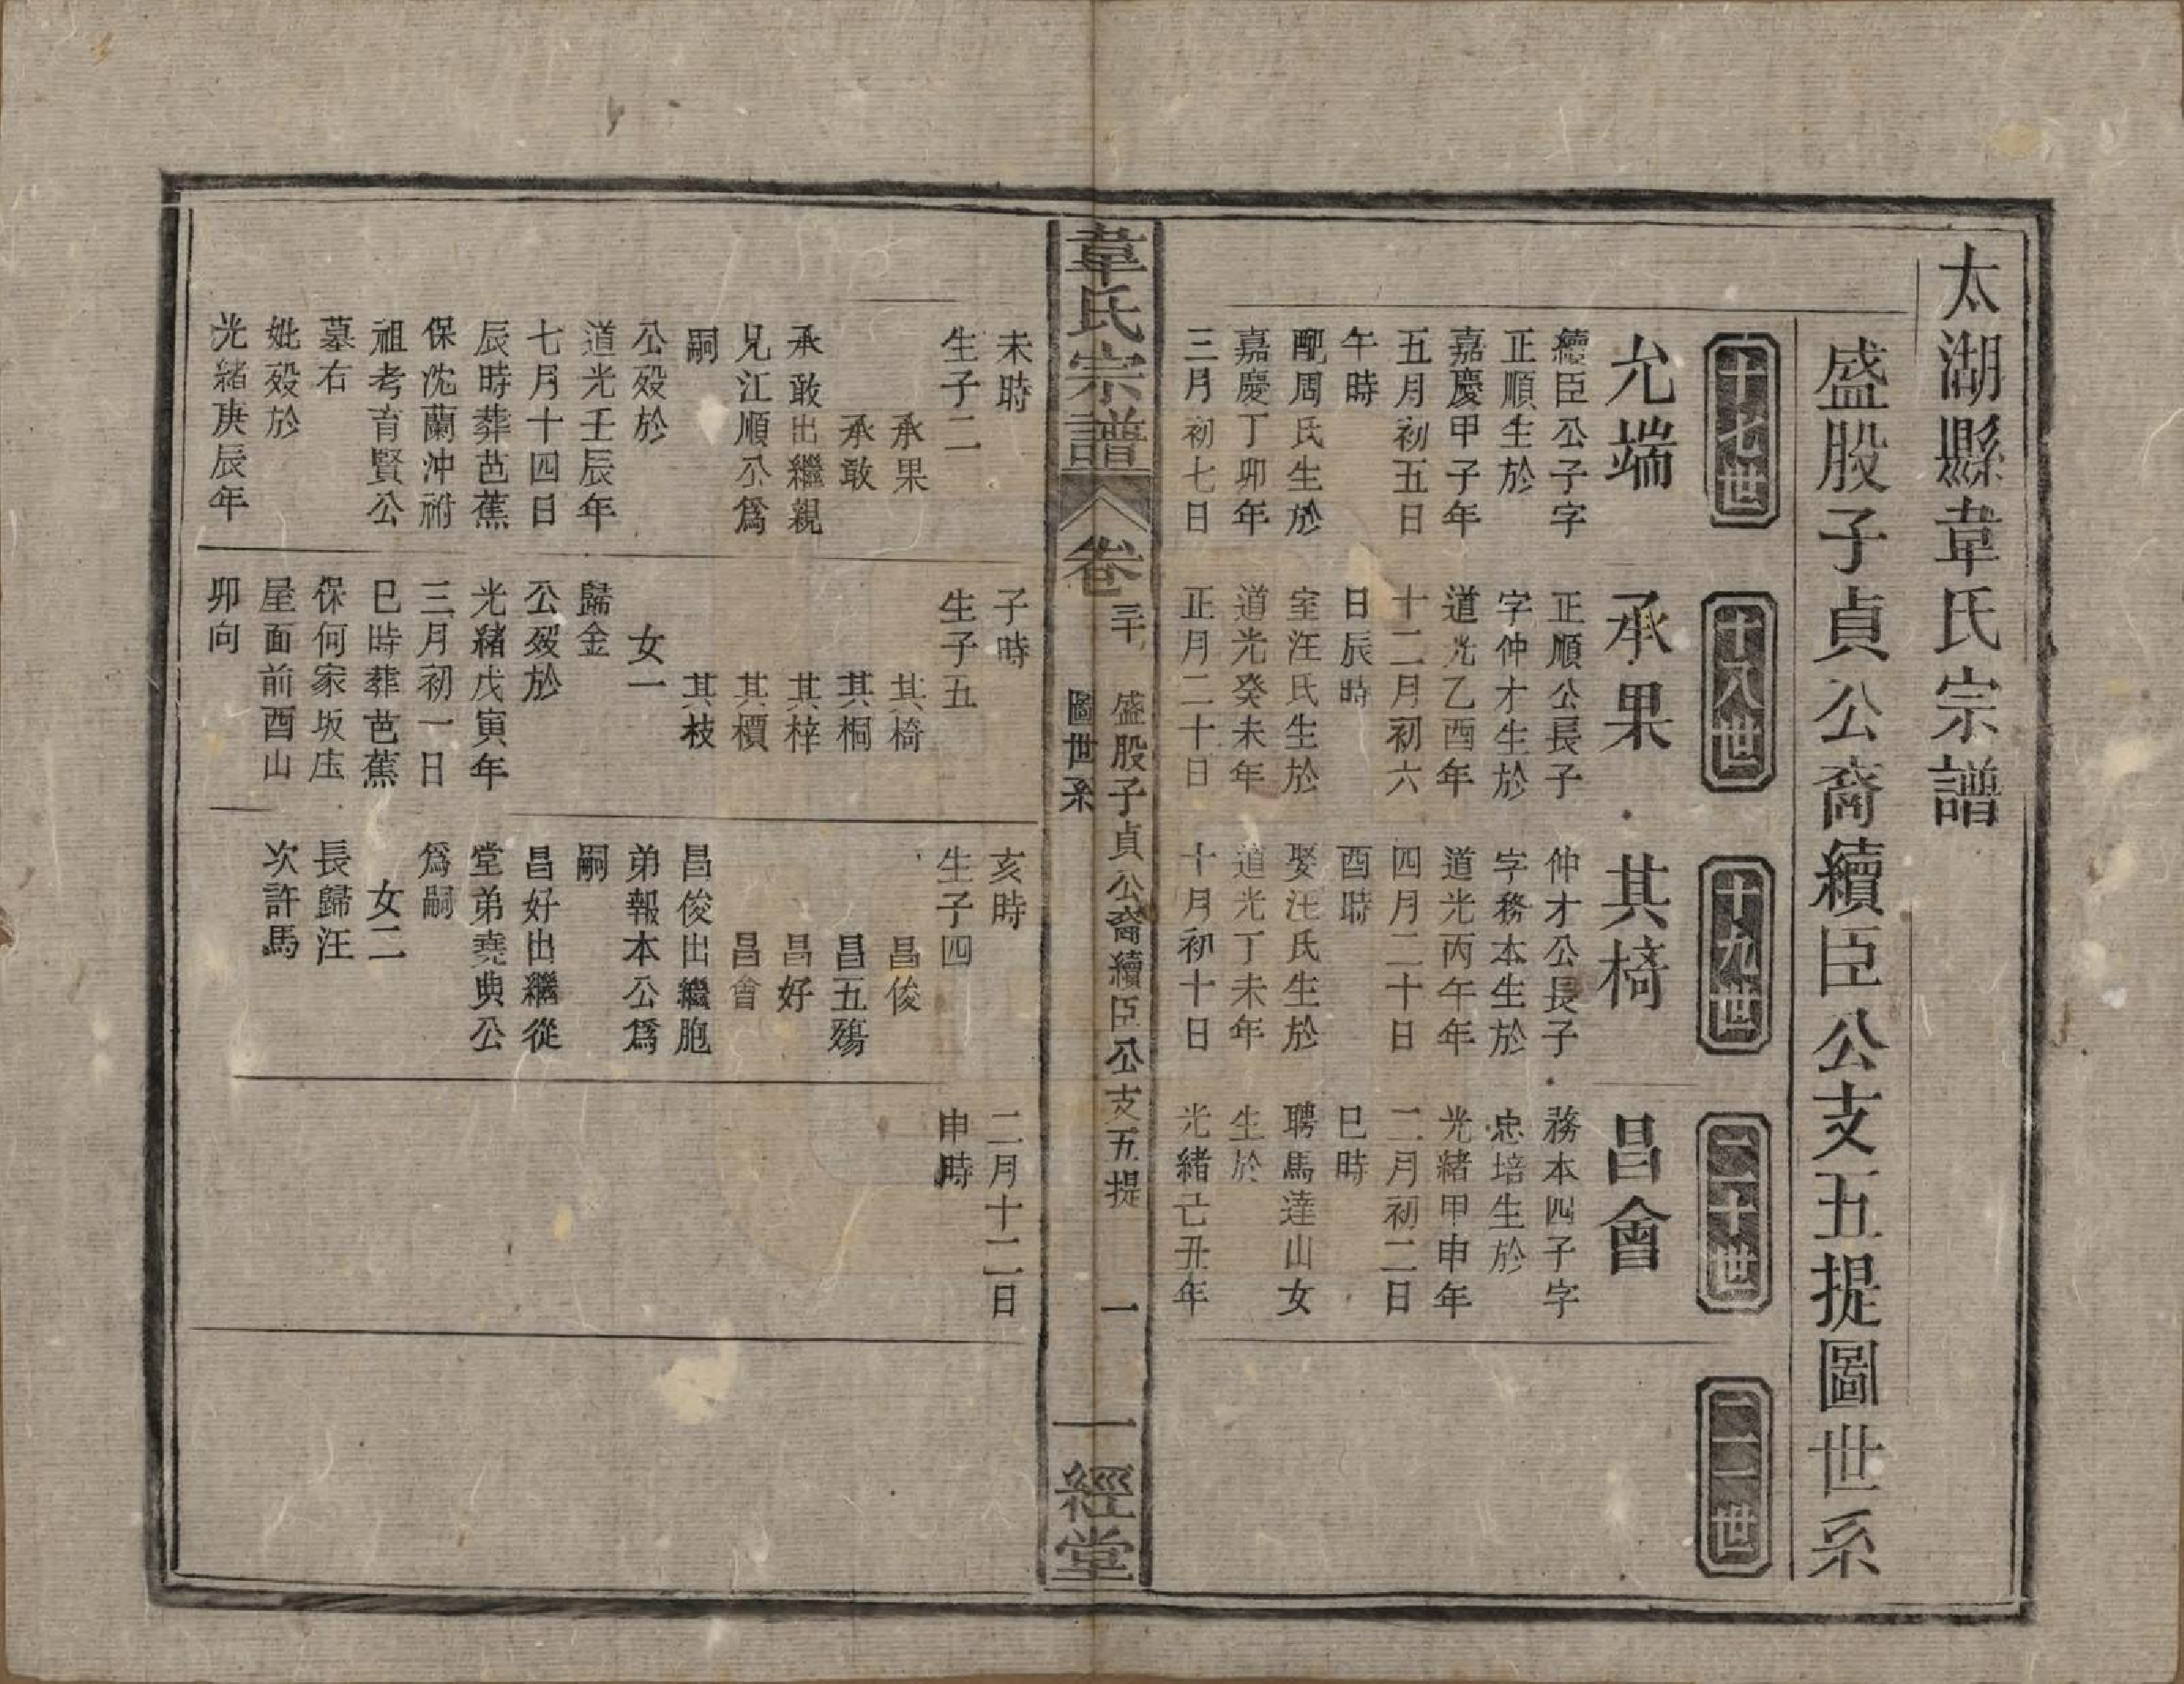 太湖縣韋氏宗譜
盛股子貞公裔續臣公支五提圖世系
十七世
十八世
十九世
二十世
二一世
允端
續臣公子字
正順生於
嘉慶甲子年
五月初五日
午時
配周氏生於
嘉慶丁卯年
三月初七日
未時
生子二
承果
承敢
承敢出繼親
兄江順公爲
嗣
公歿於
道光壬辰年
七月十四日
辰時葬芭蕉
保沈蘭沖祔
祖考育賢公
墓右
妣歿於
光緒庚辰年
承果
正順公長子
字仲才生於
道光乙酉年
十二月初六
日辰時
室汪氏生於
道光癸未年
正月二十日
子時
生子五
其椅
其桐
其梓
其檟
其枝
女一
歸金
公歿於
光緒戊寅年
三月初一日
巳時葬芭蕉
保何家坂庄
屋面前酉山
卯向
其椅
仲才公長子
字務本生於
道光丙午年
四月二十日
酉時
娶汪氏生於
道光丁未年
十月初十日
亥時
生子四
昌俊
昌五殤
昌好
昌會
昌俊出繼胞
弟報本公爲
嗣
昌好出繼從
堂弟堯典公
爲嗣
女二
長歸汪
次許馬
昌會
務本四子字
忠培生於
光緒甲申年
二月初二日
巳時
聘馬達山女
生於
光緒己丑年
二月十二日
申時
韋氏宗譜
卷三十
盛股子貞公裔續臣公支五提
圖世系
一
一經堂